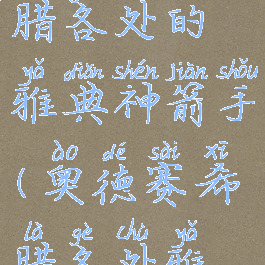 腊各处的
yǎ diǎn shén jiàn shǒu
雅典神箭手
ào dé sài xī
(奥德赛希
là gè chù yǎ
腊各处雅